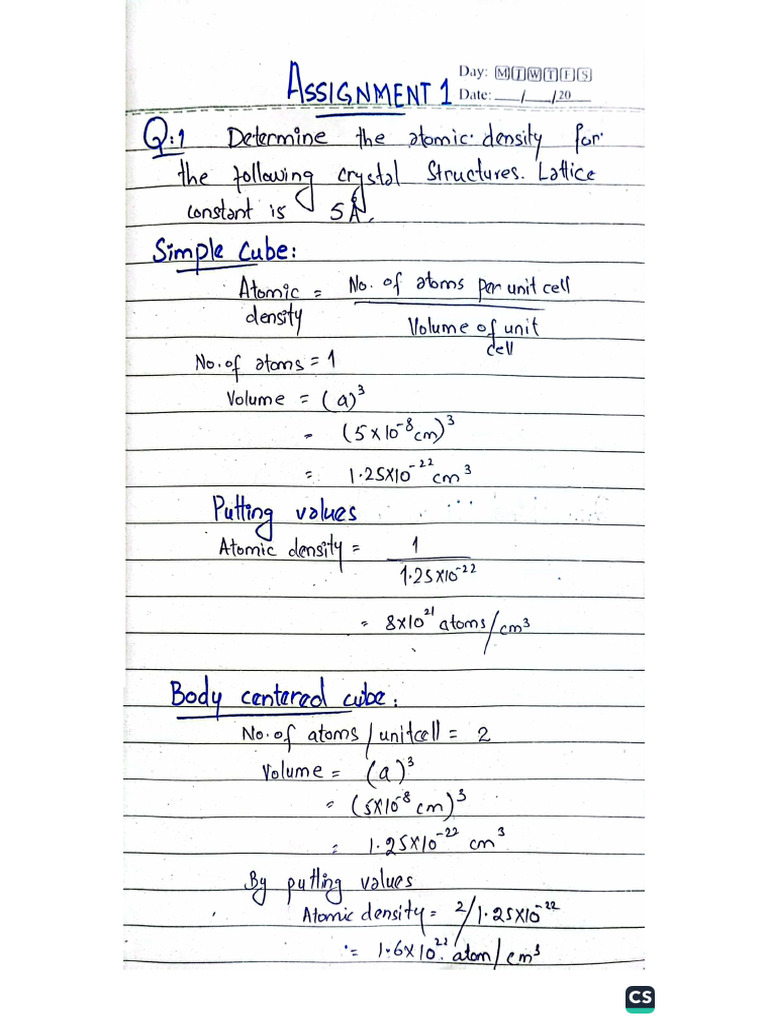 ASSIGNMENT 1
Day: M T W T F S
Date: __/__/20__
Q:1 Determine the atomic density for
the following crystal structures. Lattice
constant is 5Å.
Simple Cube:
Atomic density = No. of atoms per unit cell / Volume of unit cell
No. of atoms = 1
Volume = (a)³
= (5×10⁻⁸cm)³
= 1.25×10⁻²² cm³
Putting values
Atomic density = 1 / 1.25×10⁻²²
= 8×10²¹ atoms/cm³
Body centered cube:
No. of atoms/unitcell = 2
Volume = (a)³
= (5×10⁻⁸ cm)³
= 1.25×10⁻²² cm³
By putting values
Atomic density = 2/1.25×10⁻²²
= 1.6×10²² atom/cm³
CS